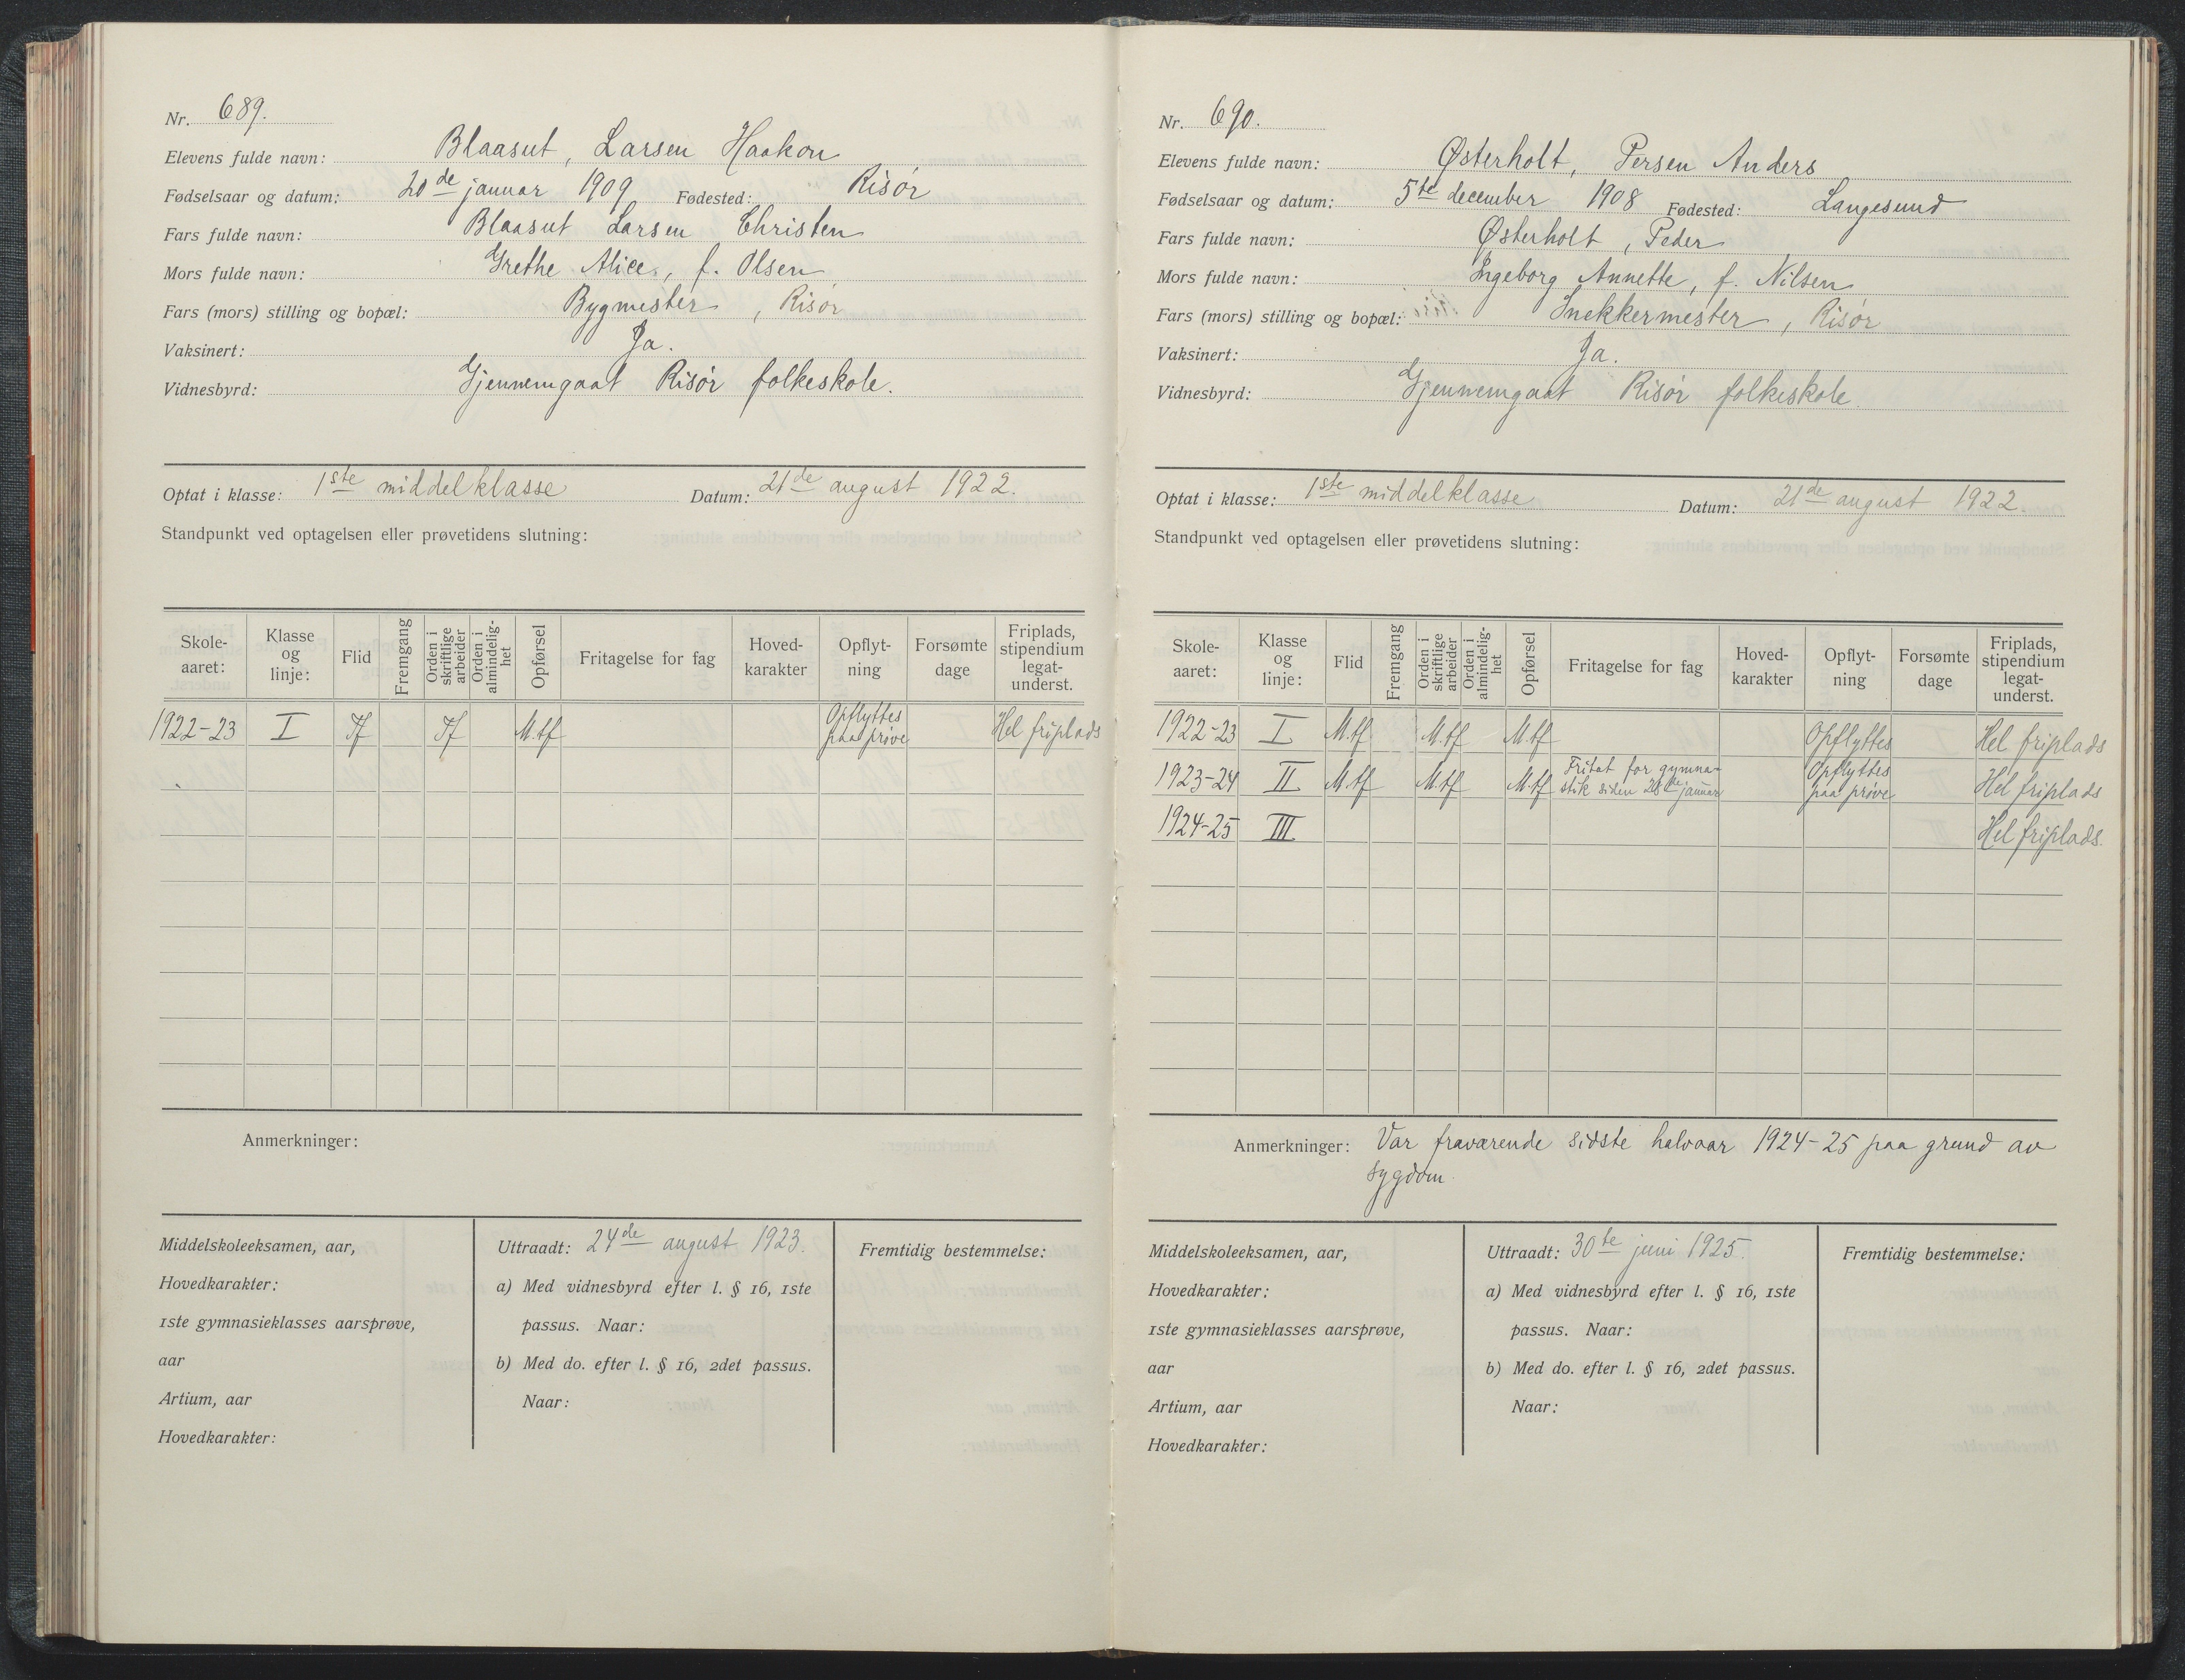 Nr. 689.
Elevens fulde navn: Blaasut, Larsen Haakon
Fødselsaar og datum: 20de januar 1909 Fødested: Risør
Fars fulde navn: Blaasut Larsen Christen
Mors fulde navn: Grethe Alice, f. Olsen
Fars (mors) stilling og bopæl: Bygmester, Risør
Vaksinert: Ja.
Vidnesbyrd: Gjennemgaat Risør folkeskole.
Optat i klasse: 1ste middelklasse Datum: 21de august 1922.
Standpunkt ved optagelsen eller prøvetidens slutning:
Skole-
aaret:
Klasse
og
linje:
Flid
Fremgang
Orden i
skriftlige
arbeider
Orden i
almindelig-
het
Opførsel
Fritagelse for fag
Hoved-
karakter
Opflyt-
ning
Forsømte
dage
Friplads,
stipendium
legat-
underst.
1922-23 I Tf Tf M.tf Opflyttes paa prøve Hel friplads
Anmerkninger:
Middelskoleeksamen, aar,
Hovedkarakter:
1ste gymnasieklasses aarsprøve,
aar
Artium, aar
Hovedkarakter:
Uttraadt: 24de august 1923.
a) Med vidnesbyrd efter l. § 16, 1ste
passus. Naar:
b) Med do. efter l. § 16, 2det passus.
Naar:
Fremtidig bestemmelse:
Nr. 690.
Elevens fulde navn: Østerholt, Persen Anders
Fødselsaar og datum: 5te december 1908 Fødested: Langesund
Fars fulde navn: Østerholt, Peder
Mors fulde navn: Ingeborg Annette, f. Nilsen
Fars (mors) stilling og bopæl: Snekkermester, Risør
Vaksinert: Ja.
Vidnesbyrd: Gjennemgaat Risør folkeskole
Optat i klasse: 1ste middelklasse Datum: 21de august 1922.
Standpunkt ved optagelsen eller prøvetidens slutning:
Skole-
aaret:
Klasse
og
linje:
Flid
Fremgang
Orden i
skriftlige
arbeider
Orden i
almindelig-
het
Opførsel
Fritagelse for fag
Hoved-
karakter
Opflyt-
ning
Forsømte
dage
Friplads,
stipendium
legat-
underst.
1922-23 I M.tf M.tf M.tf Opflyttes Hel friplads
1923-24 II M.tf M.tf M.tf Fritat for gymna-stik siden 28de januar Opflyttes paa prøve Hel friplads
1924-25 III Hel friplads.
Anmerkninger: Var fraværende sidste halvaar 1924-25 paa grund av
sygdom
Middelskoleeksamen, aar,
Hovedkarakter:
1ste gymnasieklasses aarsprøve,
aar
Artium, aar
Hovedkarakter:
Uttraadt: 30te juni 1925.
a) Med vidnesbyrd efter l. § 16, 1ste
passus. Naar:
b) Med do. efter l. § 16, 2det passus.
Naar:
Fremtidig bestemmelse: